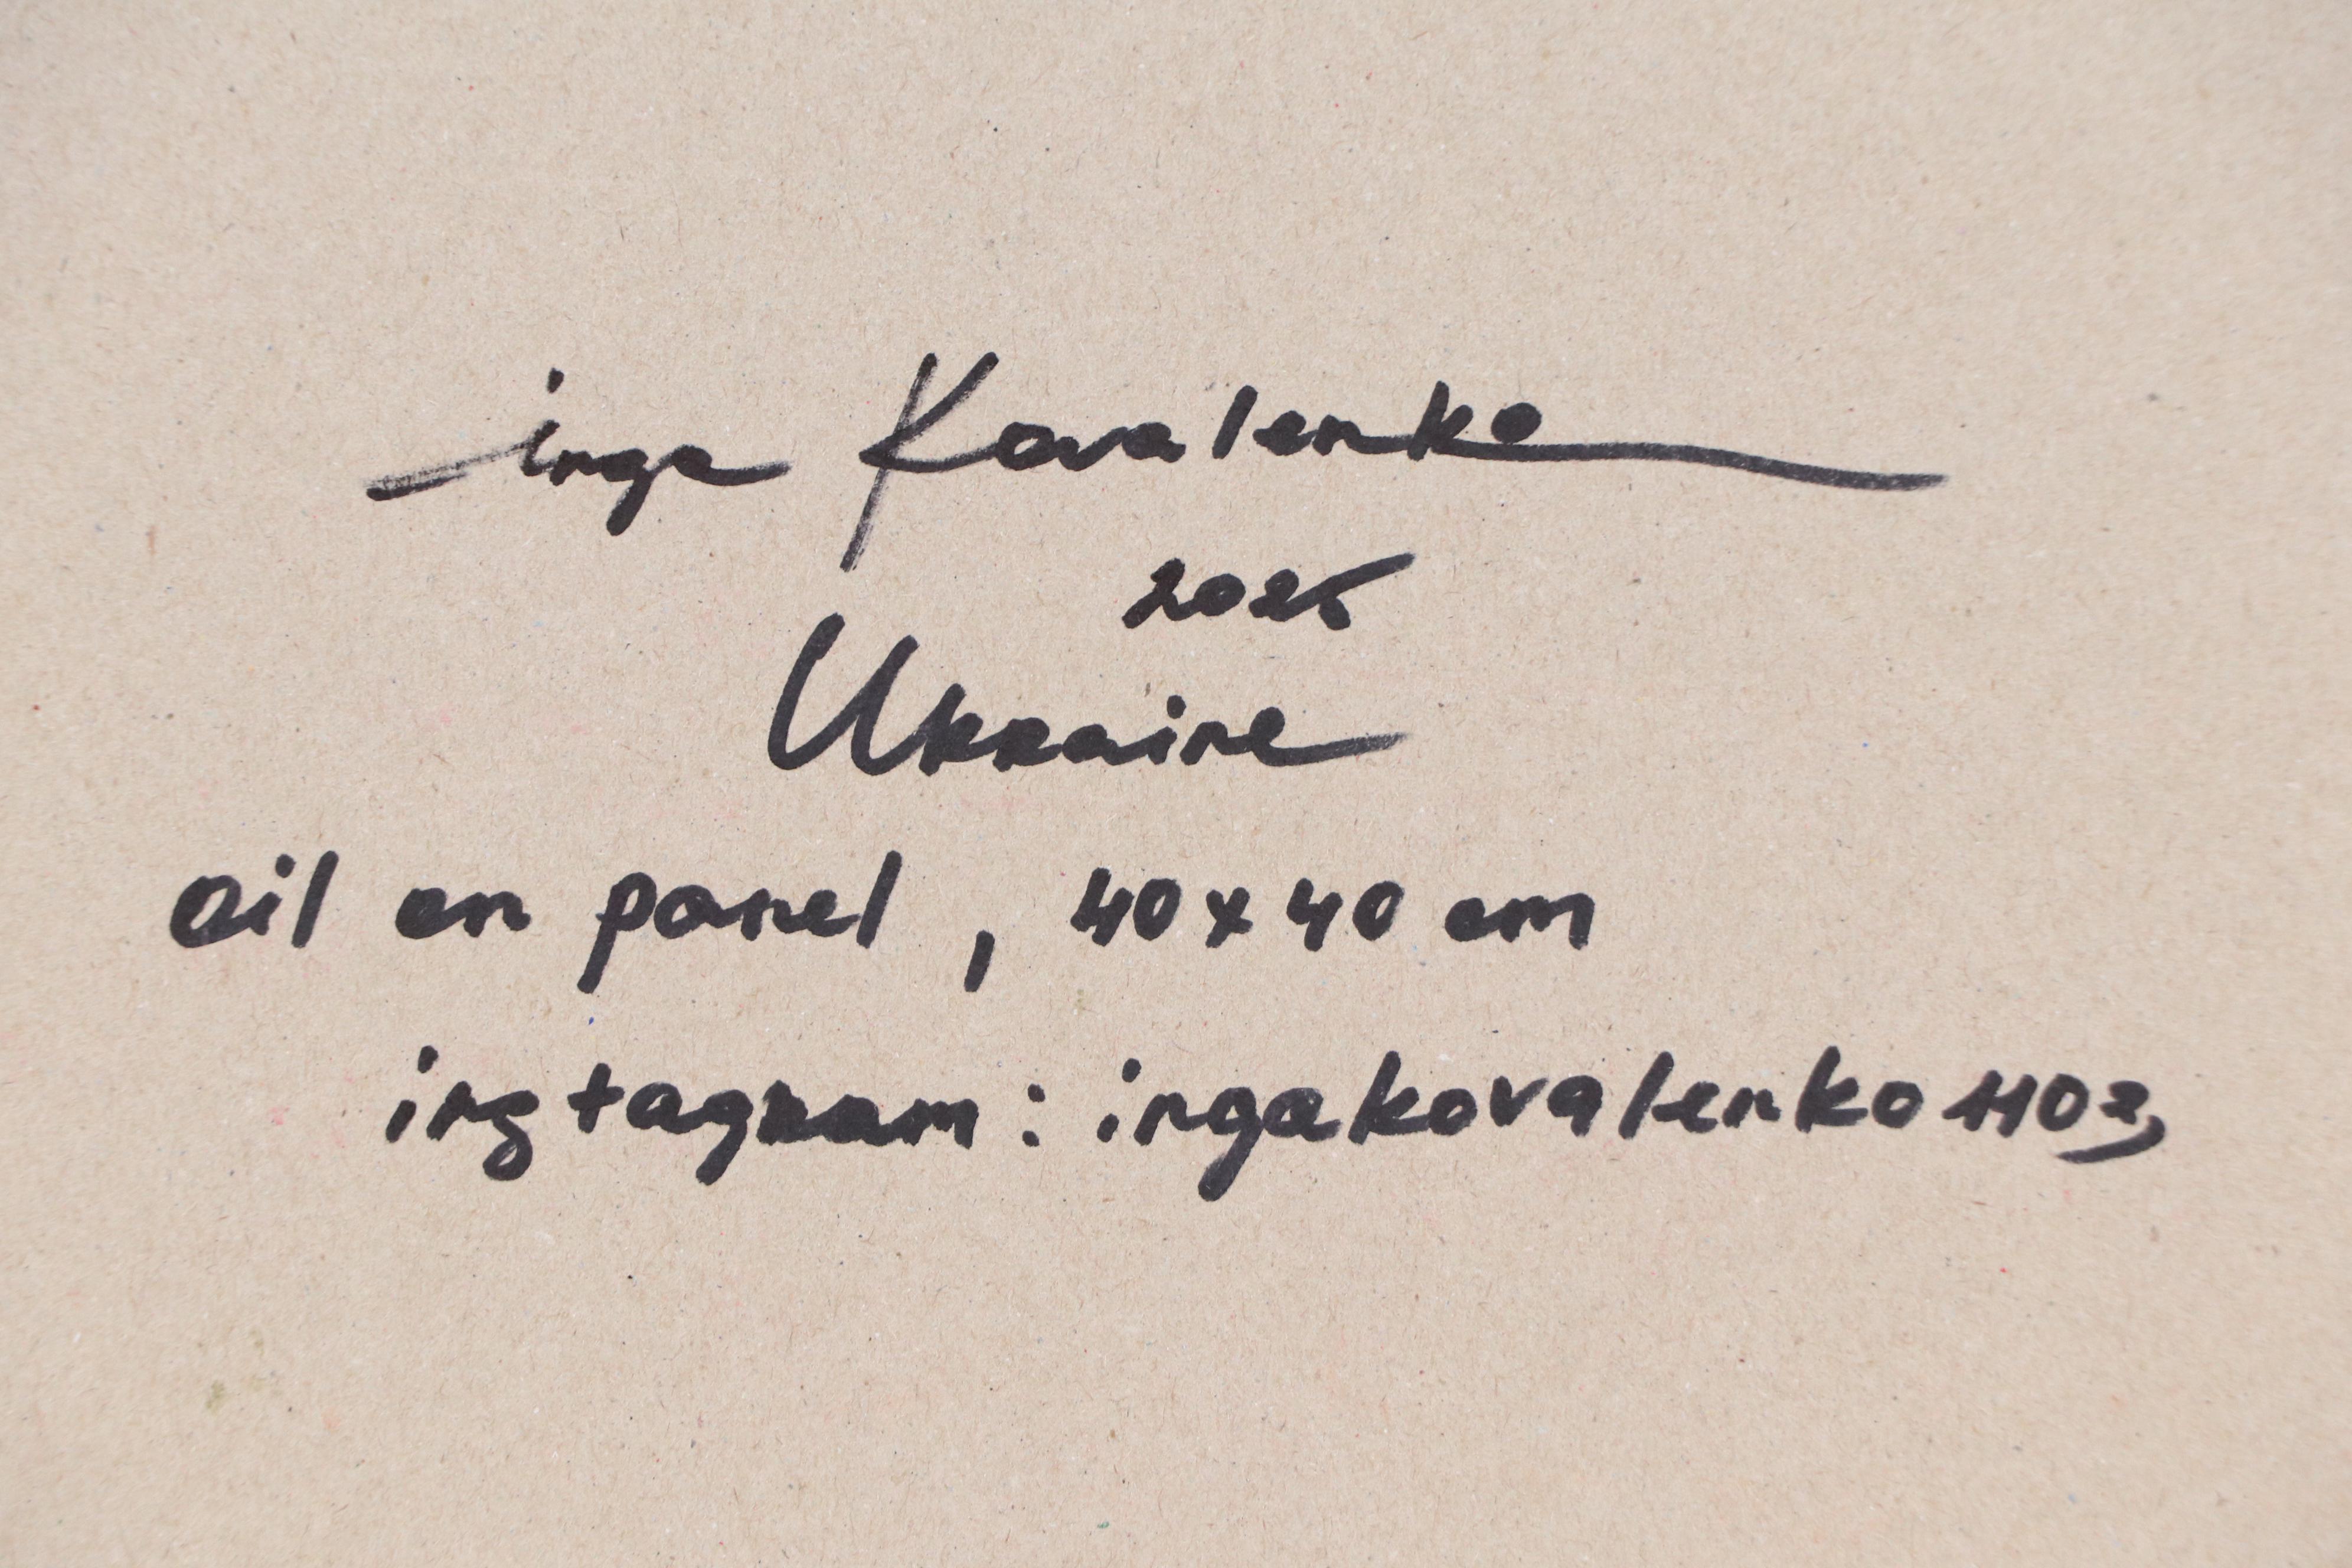 inga Kovalenko
2025
Ukraine
oil on panel , 40x40 cm
instagram : ingakovalenko1103